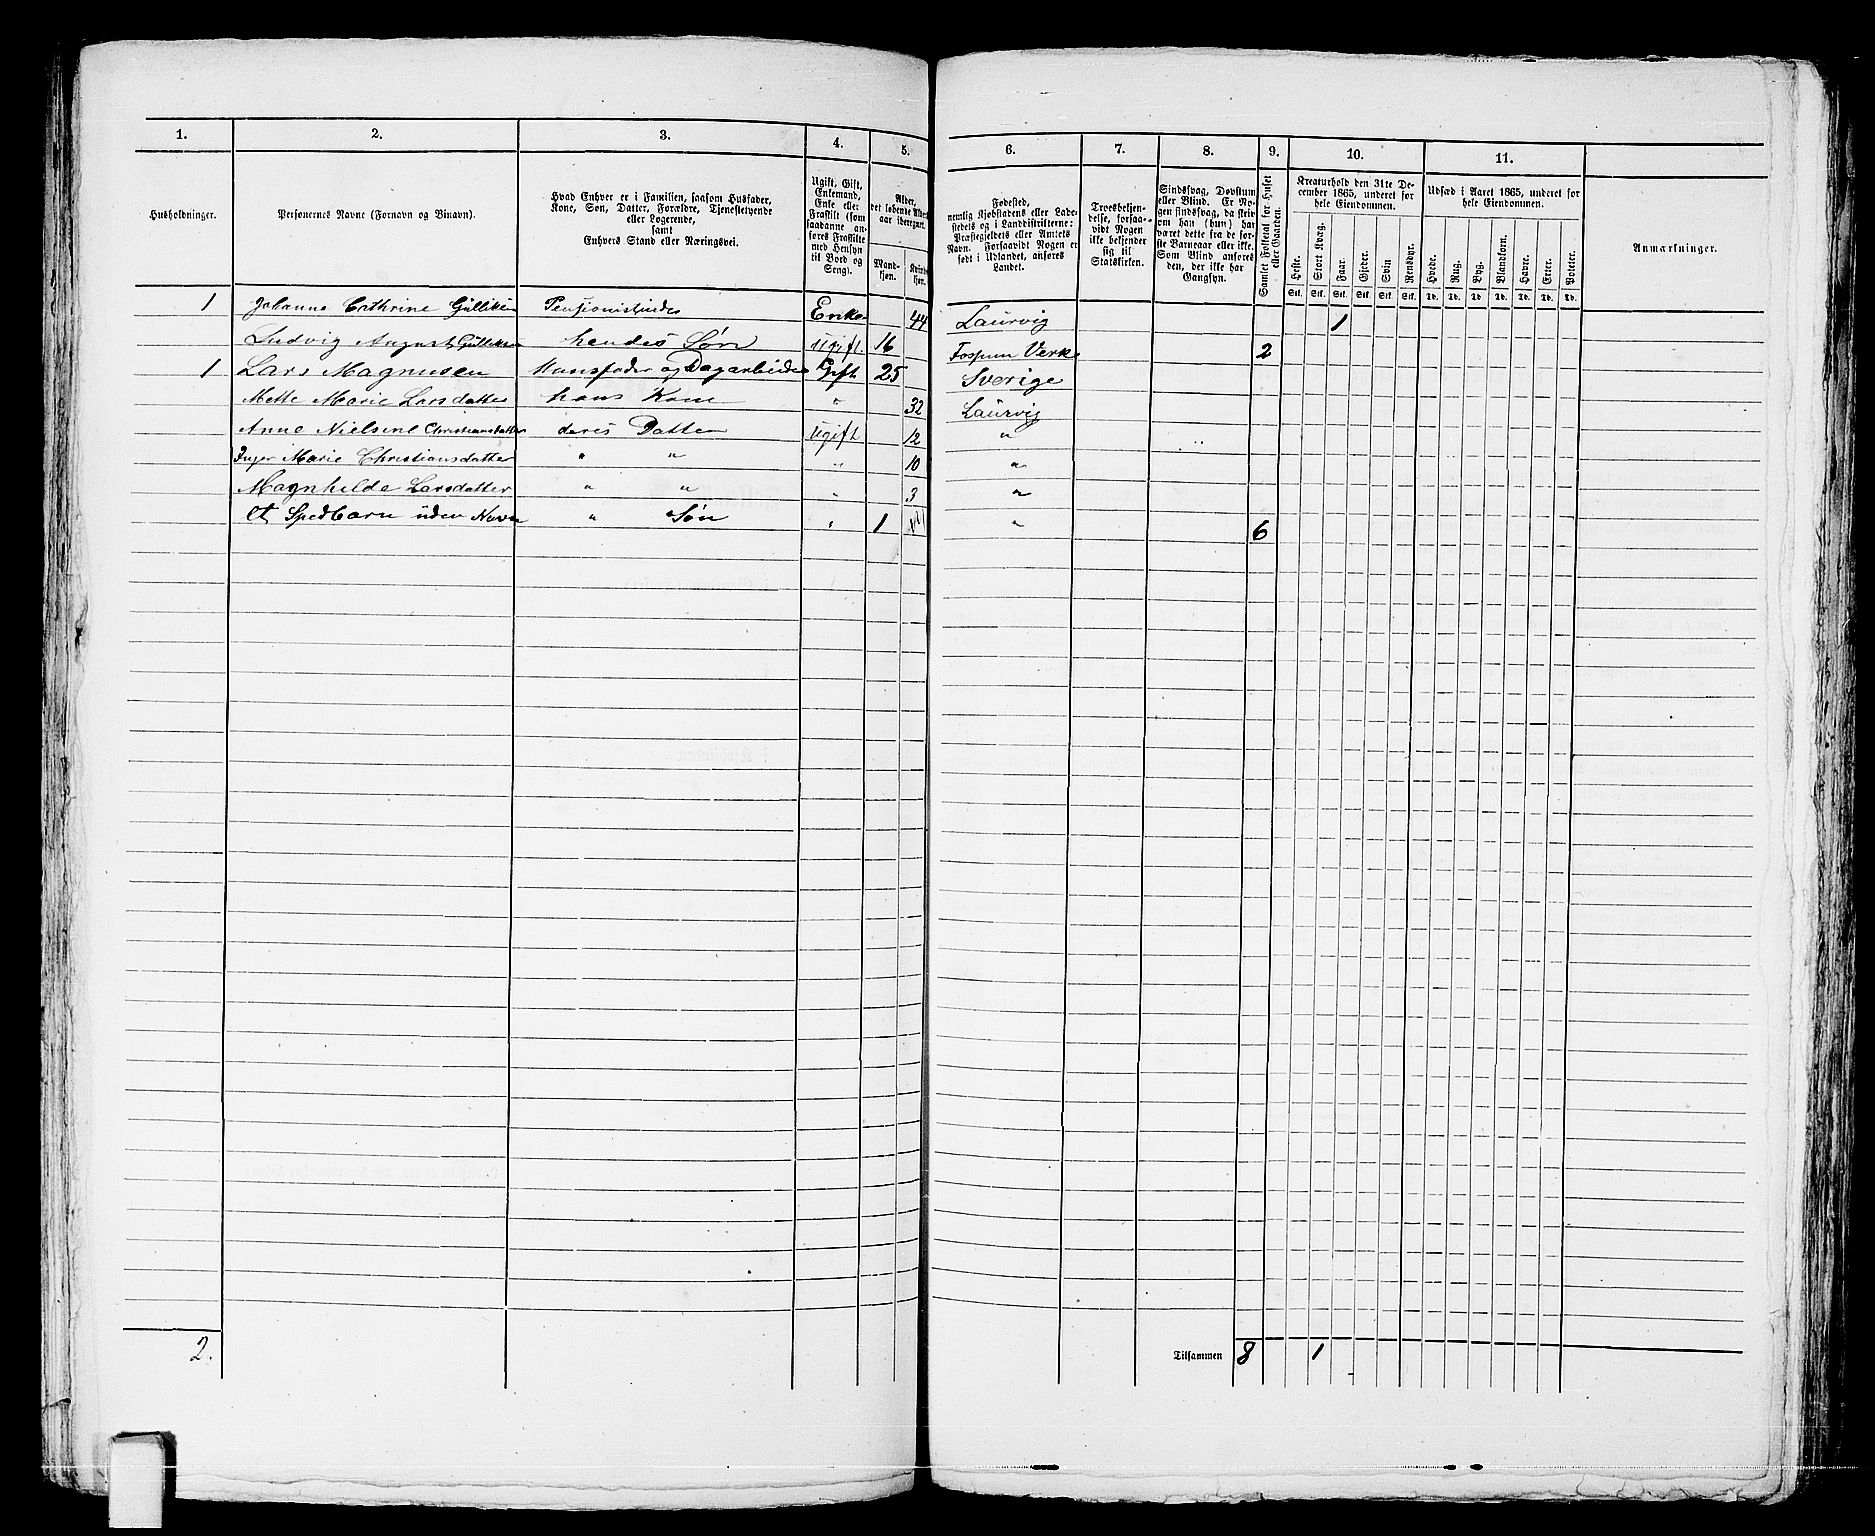 1. 2. 3. 4. 5. 6. 7. 8. 9. 10. 11.
Husholdninger.
Personernes Navne (Fornavn og Binavn).
Hvad Enhver er i Familien, saasom Husfader,
Kone, Søn, Datter, Forældre, Tjenestetyende
eller Logerende,
samt
Enhvers Stand eller Næringsvei.
Ugift, Gift,
Enkemand,
Enke eller
Fraskilt (som
saadanne an-
føres Fraskilte
med Hensyn
til Bord og
Seng).
Alder,
det løbende Alders-
aar iberegnet.
Mand-
kjøn.
Kvinde-
kjøn.
Fødested,
nemlig Kjøbstadens eller Lade-
stedets og i Landdistrikterne:
Præstegjeldets eller Amtets
Navn. Forsaavidt Nogen er
født i Udlandet, anføres
Landet.
Troesbekjen-
delse, forsaa-
vidt Nogen
ikke bekjender
sig til
Statskirken.
Sindssvag, Døvstum
eller Blind. Er No-
gen sindssvag, da skriv
om han (hun) har
været dette fra de før-
ste Barneaar eller ikke.
Som Blind anføres
den, der ikke har
Gangsyn.
Samlet Folketal for Huset
eller Gaarden.
Kreaturhold den 31te De-
cember 1865, underet for
hele Eiendommen.
Heste. Stort Kvæg. Faar. Gjeder. Svin Rensdyr.
Stk. Stk. Stk. Stk. Stk. Stk.
Udsæd i Aaret 1865, underet for
hele Eiendommen.
Hvede. Rug. Byg. Blandkorn. Havre. Erter. Poteter.
Td. Td. Td. Td. Td. Td. Td.
Anmærkninger.
1 Johanne Cathrine Gulliksen Pensionistindes Enke 44 Laurvig 1
Ludvig August Gulliksen hendes Søn Ugift 16 Fossum Verk 2
1 Lars Magnusen Huusfader og Dagarbeider Gift 25 Sverige
Mette Marie Larsdatter hans Kone " 32 Laurvig
Anne Nielsine Christiansdatter deres Datter Ugift 12 "
Inger Marie Christiansdatter " " " 10 "
Magnhilde Larsdatter " " " 3 "
et Spedbarn uden Navn " Søn " 1 " 6
2. Tilsammen 8 1